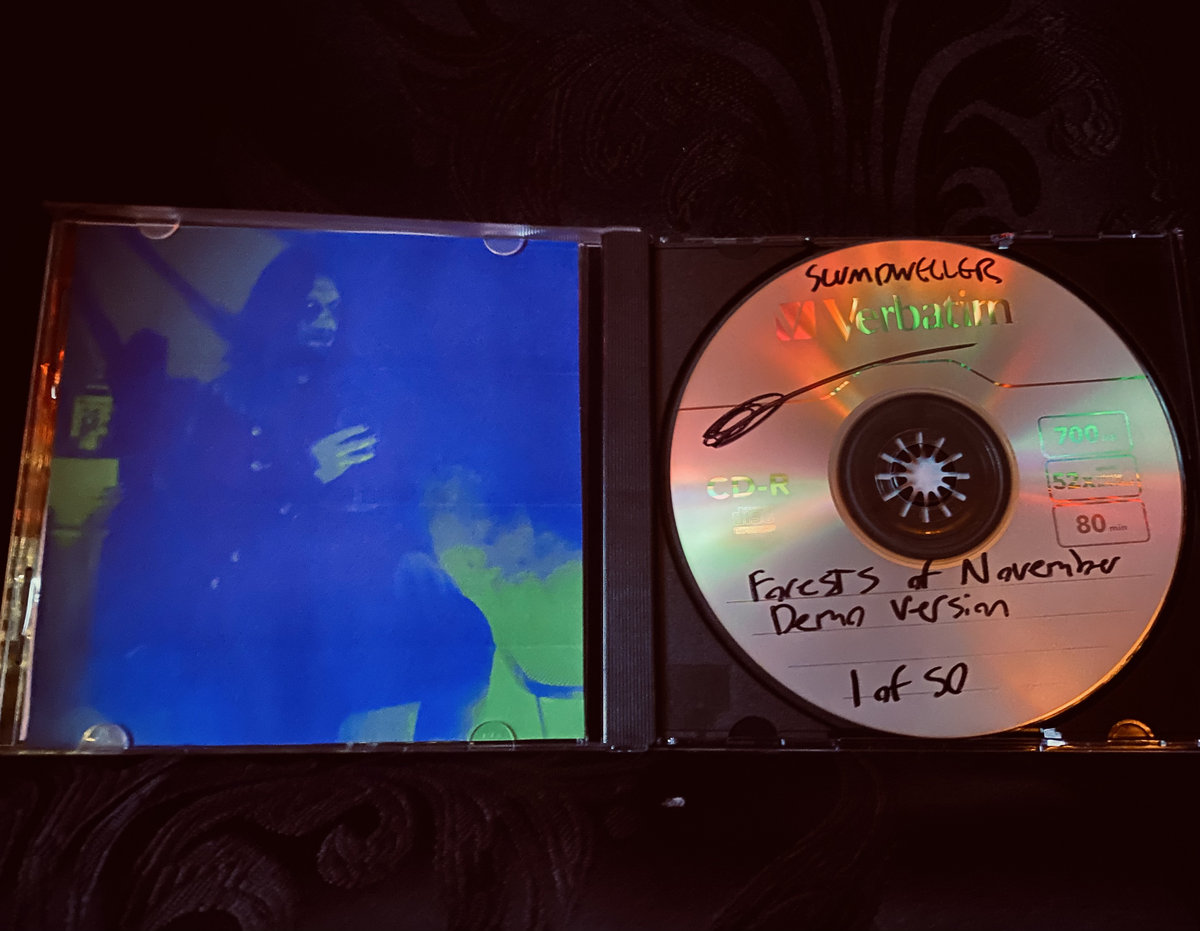 SUMPDWELLER
Verbatim
700
CD-R
52x
disc
80 min
Forests of November
Demo Version
1 of 50